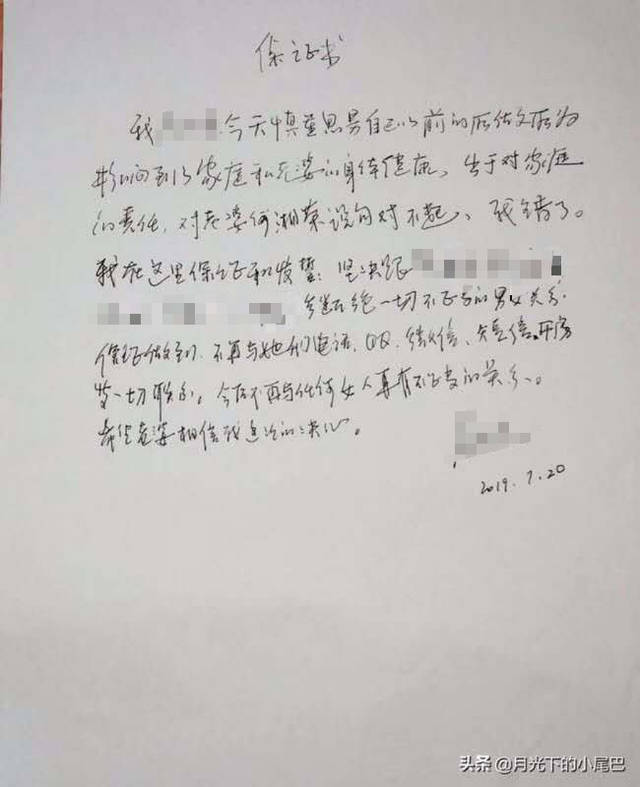 保证书
我 今天慎重思虑自己以前的所做文所为
影响到了家庭和老婆的身体健康、出于对家庭
的责任，对老婆何湘荣说句对不起、我错了。
我在这里保证和发誓：坚决跟
断绝一切不正当的男女关系.
保证做到、不再与她们电话、QQ、微信、短信、开房
等一切联系。今后不再与任何女人再有不正当的关系。
希望老婆相信我这次的决心。
2019.7.20
头条 @月光下的小尾巴